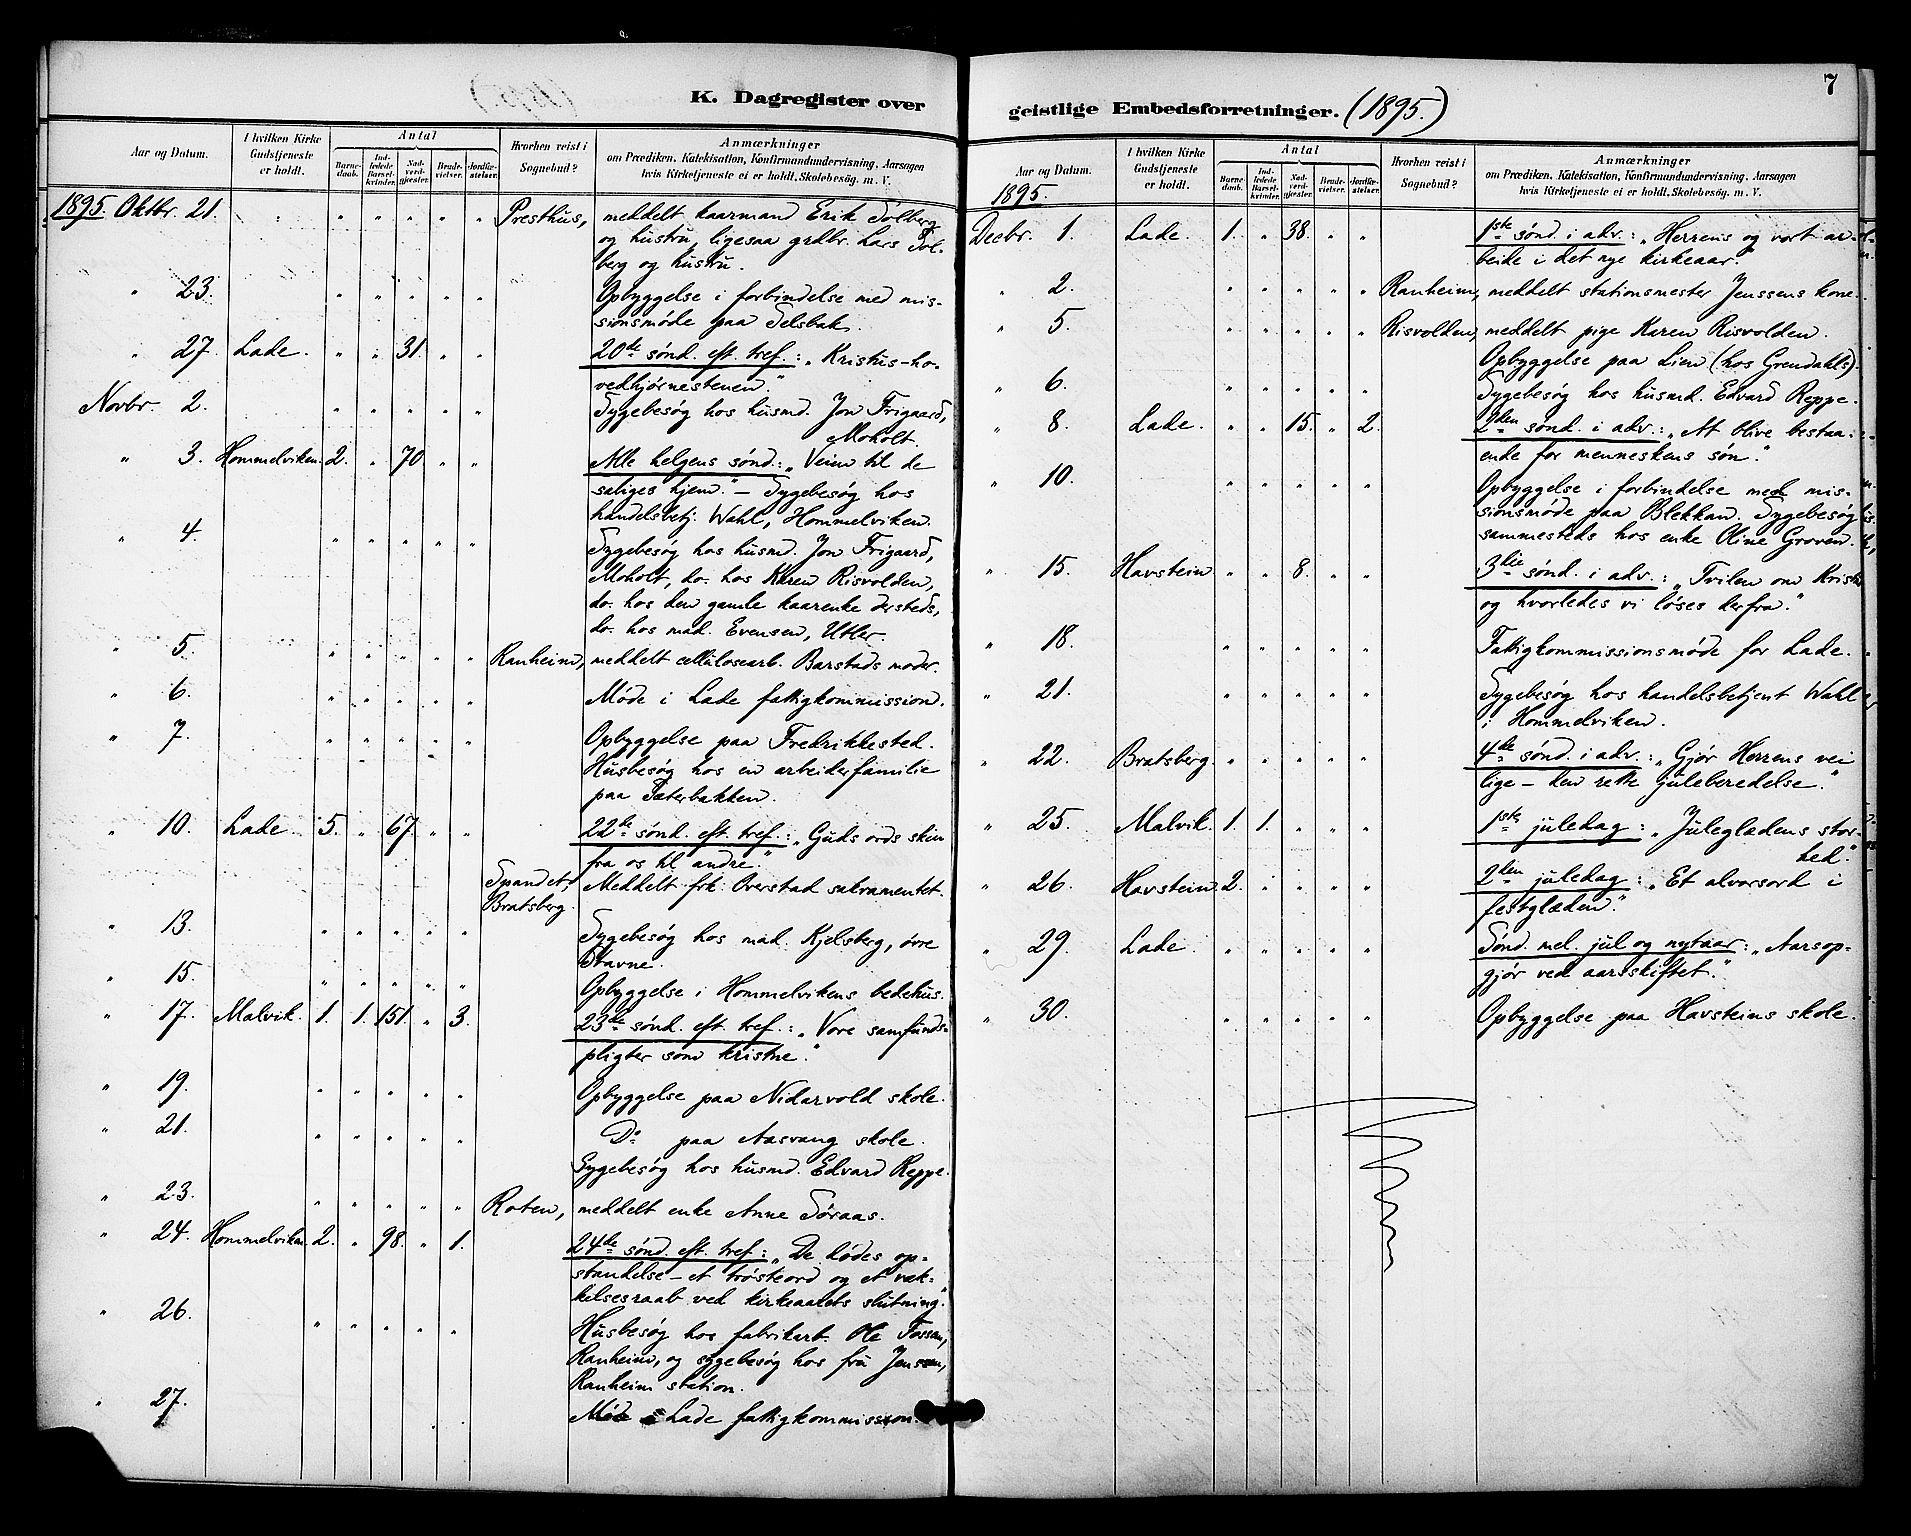 K. Dagregister over
Aar og Datum.
I hvilken Kirke Gudstjeneste er holdt.
Antal
Barnedaab.
Indledede Barselkvinder.
Nadverdgjester.
Brudevielser.
Jordfæstelser.
Hvorhen reist i Sognebud?
Anmærkninger
om Prædiken, Katekisation, Konfirmandundervisning, Aarsagen
hvis Kirketjeneste ei er holdt, Skolebesøg. m. V.
1895. Oktbr. 21. " " " " " Presthus, meddelt kaarmand Erik Solberg
og hustru, ligesaa grdbr. Lars Sol-
berg og hustru.
" 23. " " " " " Opbyggelse i forbindelse med mis-
sionsmøde paa Selsbak.
" 27. Lade. " " 31. " " 20de sønd. eft. tref.: "Kristus-ho-
vedhjørnestenen."
Novbr. 2. " " " " " Sygebesøg hos husmd. Jon Frigaard,
Moholt.
" 3. Hommelviken. 2. " 70 " " Alle helgens sønd.: "Veien til de
saliges hjem." – Sygebesøg hos
handelsbetj. Wahl, Hommelviken.
" 4. " " " " " Sygebesøg hos husmd. Jon Frigaard,
Moholt, do. hos Karen Risvolden,
do. hos den gamle kaarenke dersteds,
do. hos mad. Evensen, Utler.
" 5. " " " " " Ranheim, meddelt cellulosearb. Barstads moder.
" 6. " " " " " Møde i Lade fattigkommission.
" 7. " " " " " Opbyggelse paa Fredrikkested.
Husbesøg hos en arbeiderfamilie
paa Sæterbakken.
" 10. Lade. 5. " 67. " " 22de sønd. eft. tref.: "Guds ords skin
fra os til andre."
Spandet, Meddelt frk. Overstad sakramentet.
Bratsberg.
" 13. " " " " " Sygebesøg hos mad. Kjelsberg, øvre
Stavne.
" 15. " " " " " Opbyggelse i Hommelvikens bedehus.
" 17. Malvik. 1. 1. 151. " 3. 23de sønd. eft. tref.: "Vore samfunds-
pligter som kristne."
" 19. " " " " " Opbyggelse paa Nidarvold skole.
" 21. " " " " " Do paa Aasvang skole.
Sygebesøg hos husmd. Edvard Reppe.
" 23. " " " " " Roten, meddelt enke Anne Søraas.
" 24. Hommelviken. 2. " 98. " 1. 24de sønd. eft. tref.: "De dødes op-
standelse – et trøsteord og et væk-
kelsesraab ved kirkeaarets slutning."
" 26. " " " " " Husbesøg hos fabrikarb. Ole Fossan,
Ranheim, og sygebesøg hos fru Jenssen,
Ranheim station.
" 27. Møde i Lade fattigkommission.
7
geistlige Embedsforretninger. (1895.)
Aar og Datum.
I hvilken Kirke Gudstjeneste er holdt.
Antal
Barnedaab.
Indledede Barselkvinder.
Nadverdgjester.
Brudevielser.
Jordfæstelser.
Hvorhen reist i Sognebud?
Anmærkninger
om Prædiken, Katekisation, Konfirmandundervisning, Aarsagen
hvis Kirketjeneste ei er holdt, Skolebesøg. m. V.
1895.
Decbr. 1. Lade. 1. " 38. " " 1ste sønd. i adv.: "Herrens og vort ar-
beide i det nye kirkeaar."
" 2. " " " " " Ranheim, meddelt stationsmester Jenssens kone.
" 5. " " " " " Risvolden, meddelt pige Karen Risvolden.
Opbyggelse paa Lien (hos Grendahls).
" 6. " " " " " Sygebesøg hos husmd. Edvard Reppe.
" 8. Lade. " " 15. " 2. 2den sønd. i adv.: "At blive bestaa-
ende for menneskens søn."
" 10. " " " " " Opbyggelse i forbindelse med mis-
sionsmøde paa Blekkan. Sygebesøg
sammesteds hos enke Oline Groven.
" 15. Havstein. " " 8. " " 3die sønd. i adv.: "Tvilen om Kristus
og hvorledes vi løses derfra."
" 18. " " " " " Fattigkommissionsmøde for Lade.
" 21. " " " " " Sygebesøg hos handelsbetjent Wahl
i Hommelviken.
" 22. Bratsberg. " " " " " 4de sønd. i adv.: "Gjør Herrens vei
lige – den rette juleberedelse."
" 25. Malvik. 1. 1. " " " 1ste juledag: "Juleglædens stor-
hed."
" 26. Havstein. 2. " " " " 2den juledag: "Et alvorsord i
festglæden."
" 29. Lade. " " " " " Sønd. mel. jul og nytaar: "Aarsop-
gjør ved aarsskiftet."
" 30. " " " " " Opbyggelse paa Havsteins skole.